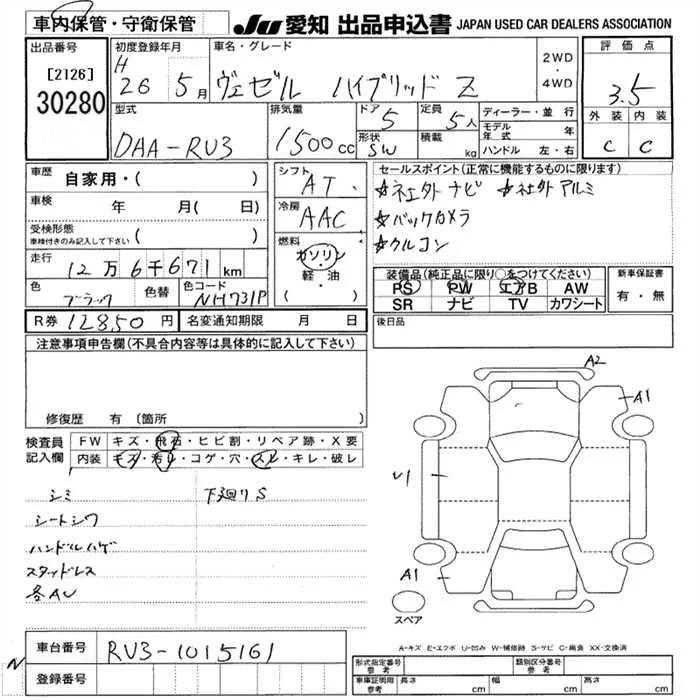 車内保管・守衛保管
JU 愛知 出品申込書 JAPAN USED CAR DEALERS ASSOCIATION
出品番号
[2126]
30280
初度登録年月
H 26 5月
車名・グレード
ヴェゼル ハイブリッド Z
2WD・4WD
評価点
3.5
外装 内装
C C
型式
DAA-RU3
排気量
1500cc
ドア
5
形状
SW
定員
5人
積載
kg
ディーラー・並行
モデル年式 年
ハンドル 左・右
車歴
自家用・( )
車検 年 月( 日)
受検形態
車検付きのみ記入して下さい ( )
走行
12万6千671km
色
ブラック
色替
色コード
NH731P
シフト
AT
冷房
AAC
燃料
ガソリン・軽・油
( )
セールスポイント(正常に機能するものに限ります)
☆社外ナビ ☆社外アルミ
☆バックカメラ
☆クルコン
装備品(純正品に限り○をつけてください)
PS PW エアB AW
SR ナビ TV カワシート
新車保証書
有・無
R券 12850円
名変通知期限 月 日
後日品
注意事項申告欄(不具合内容等は具体的に記入して下さい)
修復歴 有 〔箇所
検査員記入欄
FW キズ・飛石・ヒビ割・リペア跡・X要
内装 キズ・汚れ・コゲ・穴・スレ・キレ・破レ
シミ 下廻りS
シートシワ
ハンドルハゲ
スタッドレス
各AU
A2
A1
U1
A1
スペア
A-キズ E-エクボ U-凹み W-補修跡 S-サビ C-腐食 XX-交換済
N
車台番号
RU3-1015161
登録番号
形式指定番号
参考
類別区分番号
車庫証明用
参考
長さ cm 幅 cm 高さ cm